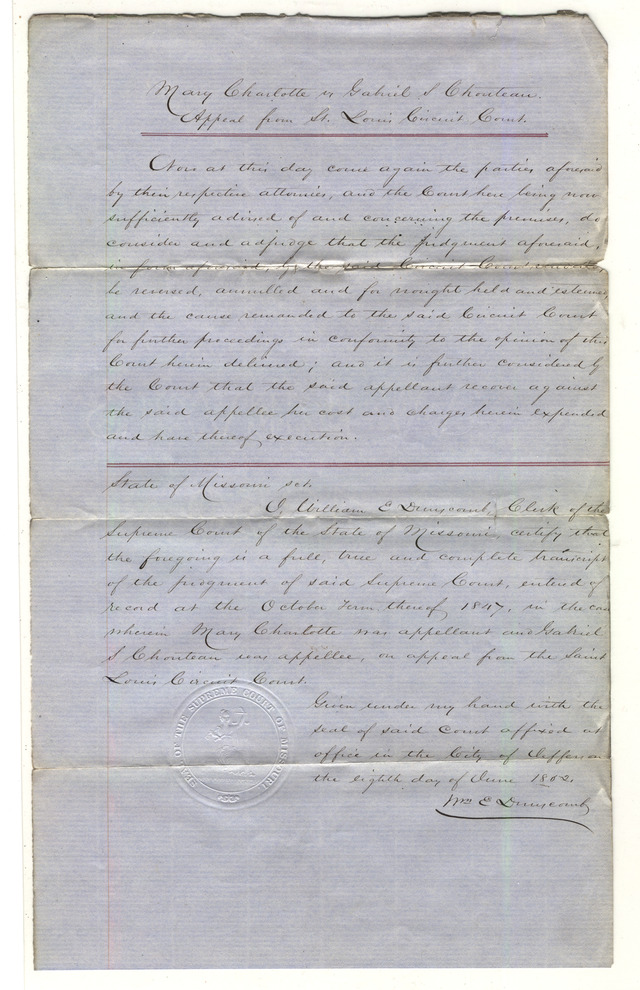 Mary Charlotte vs Gabriel S Chouteau.
Appeal from St. Louis Circuit Court.
Now at this day come again the parties aforesaid
by their respective attornies, and the Court here being now
sufficiently advised of and concerning the premises, do
consider and adjudge that the judgment aforesaid,
in form aforesaid, by the said Circuit Court rendered,
be reversed, annulled and for nought held and esteemed,
and the cause remanded to the said Circuit Court
for further proceedings in conformity to the opinion of this
Court herein delivered; and it is further considered by
the Court that the said appellant recover against
the said appellee her cost and charges herein expended
and have thereof execution.
State of Missouri sct.
I, William E Dunscomb, Clerk of the
Supreme Court of the State of Missouri, certify that
the foregoing is a full, true and complete transcript
of the judgment of said Supreme Court, entered of
record at the October Term thereof, 1847, in the case
wherein Mary Charlotte was appellant and Gabriel
S Chouteau was appellee, on appeal from the Saint
Louis Circuit Court.
Given under my hand with the
seal of said court affixed at
office in the City of Jefferson
the eighth day of June 1852.
Wm E Dunscomb
SEAL OF THE SUPREME COURT OF MISSOURI